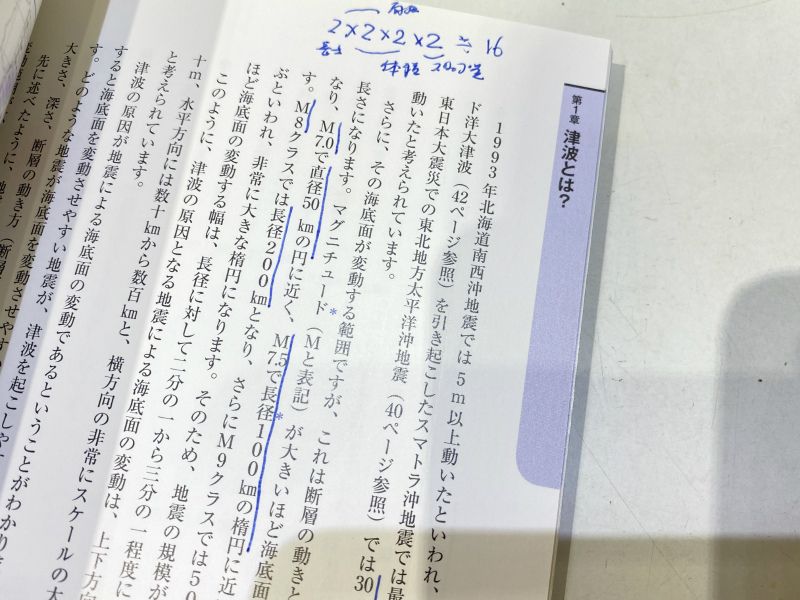 2×2×2×2≒16
体積
第1章 津波とは?
1993年北海道南西沖地震では5m以上動いたといわれ、
ド洋大津波（42ページ参照）を引き起こしたスマトラ沖地震では最
東日本大震災での東北地方太平洋沖地震（40ページ参照）では30
動いたと考えられています。
さらに、その海底面が変動する範囲ですが、これは断層の動きと
長さになります。マグニチュード*（Mと表記）が大きいほど海底面
なり、M7.0で直径50kmの円に近く、M7.5で長径*100kmの楕円に近
す。M8クラスでは長径200kmとなり、さらにM9クラスでは50
ぶといわれ、非常に大きな楕円になります。そのため、地震の規模が
ほど海底面の変動する幅は、長径に対して二分の一から三分の一程度に
このように、津波の原因となる地震による海底面の変動は、上下方向
十m、水平方向には数十kmから数百kmと、横方向の非常にスケールの大
と考えられています。
津波の原因が地震による海底面の変動であるということがわかりま
すると海底面を変動させやすい地震が、津波を起こしやす
す。どのような地震が海底面を変動させ
大きさ、深さ、断層の動き方（断層
先に述べたように、